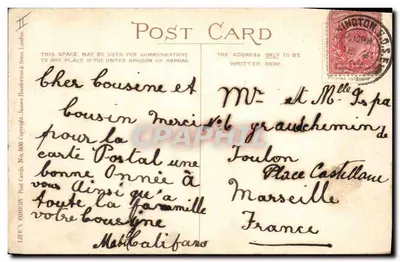 II
POST CARD
THIS SPACE MAY BE USED FOR COMMUNICATIONS
TO ANY PLACE IN THE UNITED KINGDOM OR ABROAD.
THE ADDRESS ONLY TO BE
WRITTEN HERE.
Cher Cousine et
Cousin merci
pour la
carte Postal une
bonne Onnée à
vous Ainsi qu'a
toute la famille
votre Cousine
Califano
Mr et Mlle
No 6 grand chemin de
Toulon
Place Castellane
Marseille
France
LIFE'S COMEDY Post Cards, No. 500 Copyright James Henderson & Sons, London.
INGTON.S.O.
CARTE-POSTALE